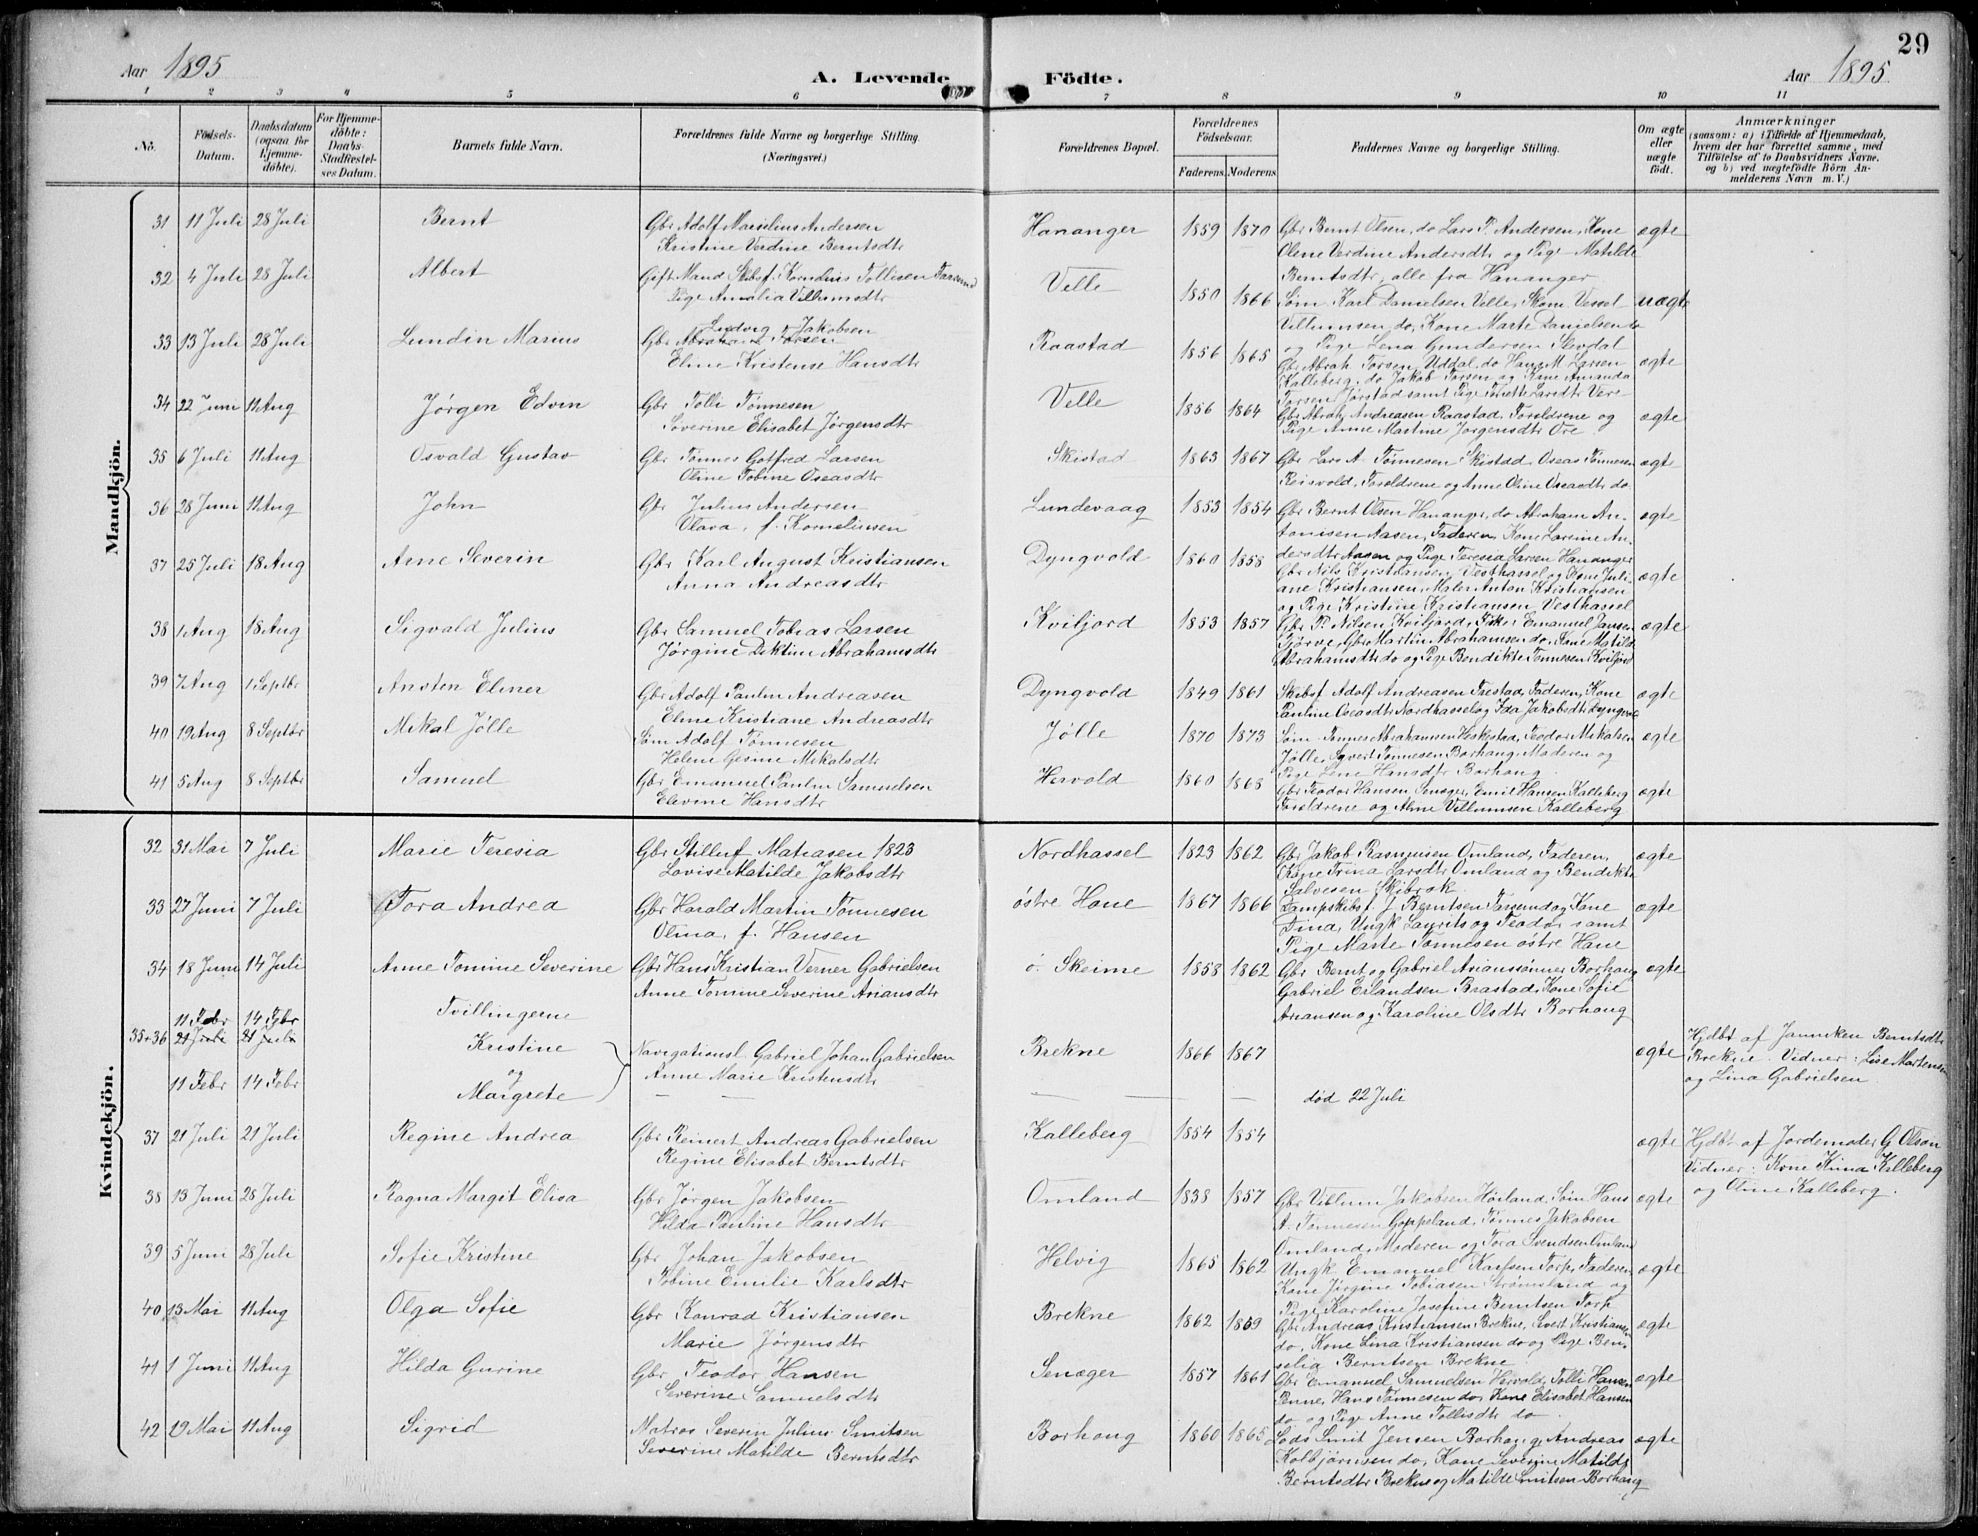 29
Aar 1895
A. Levende Födte.
Aar 1895.
1 2 3 4 5 6 7 8 9 10 11
No.
Födsels-Datum.
Daabsdatum (ogsaa for Hjemme-döbte).
For Hjemme-döbte: Daabs-Stadfæstel-ses Datum.
Barnets fulde Navn.
Forældrenes fulde Navne og borgerlige Stilling. (Næringsvei.)
Forældrenes Bopæl.
Forældrenes Födselsaar.
Faderens. Moderens.
Faddernes Navne og borgerlige Stilling.
Om ægte eller uægte födt.
Anmærkninger
(saasom: a) i Tilfælde af Hjemmedaab, hvem der har forrettet samme, med Tilföielse af to Daabsvidners Navne, og b) ved uægtefödte Börn An-melderens Navn m. V.)
Mandkjön.
31 11 Juli 28 Juli Bernt Gbr Adolf Marselius Andersen Hananger 1859 1870 Gbr Bernt Olsen, do Lars P. Andersen, Kone ægte
Kristine Verdine Berntsdtr Olene Verdine Andersdtr og Pige Matilde
Berntsdtr, alle fra Hananger
32 4 Juli 28 Juli Albert Gift Mand Skibsf. Kornelius Tollisen Farsund Velle 1850 1866 Søm. Karl Danielsen Velle, Skom Vessel uægte
Pige Amalia Villumsdtr Villumsen do, Kone Marte Danielsen do
og Pige Lena Gundersen Slevdal
33 13 Juli 28 Juli Lundin Marius Gbr Ludvig Jakobsen Raastad 1856 1865 Gbr Abrah Torsen Uddal, do Hans M. Larsen ægte
Eline Kristense Hansdtr Kalleberg, do Jakob Torsen og Kone Amanda
Torsen Jørstad samt Pige Larsdtr Vere
34 22 Juni 11 Aug Jørgen Edvin Gbr Tolli Tønnesen Velle 1856 1864 Gbr Abrah. Andreasen Raastad, Forældrene og ægte
Severine Elisabet Jørgensdtr Pige Anne Martine Jørgensdtr Ore
35 6 Juli 11 Aug Osvald Gustav Gbr Tønnes Gotfred Larsen Skistad 1863 1867 Gbr Lars A. Tønnesen Skistad, Oseas Tønnesen ægte
Oline Tobine Oseasdtr Reisvold, Forældrene og Anne Oline Oseasdtr do.
36 28 Juni 11 Aug John Gbr Julius Andersen Lundevaag 1853 1854 Gbr Bernt Olsen Hananger, do Abraham An- ægte
Olava, f. Korneliusen tonisen Aasen, Faderen, Kone Larsine An-
dersdtr Aasen og Pige Teresia Larsen Hananger
37 25 Juli 18 Aug Arne Severin Gbr Karl August Kristiansen Dyngvold 1860 1858 Gbr Nils Kristiansen Vesthassel og Kone Juli- ægte
Anna Andreasdtr ane Kristiansen, Maler Anton Kristiansen
og Pige Kristine Kristiansen Vesthassel
38 1 Aug 18 Aug Sigvald Julius Gbr Samuel Tobias Larsen Kviljord 1853 1857 Gbr P. Nilsen Kviljord, Emanuel Jansen ægte
Jørgine Abrahamsdtr Tjørve, Gbr Martin Abrahamsen do, Kone Matilde
Abrahamsdtr do og Pige Bendikte Tønnesen Kviljord
39 7 Aug 1 Septbr Ansten Elmer Gbr Adolf Paulin Andreasen Dyngvold 1849 1861 Skibsf Adolf Andreasen Frestad, Faderen, Kone ægte
Eline Kristiane Andreasdtr Pauline Oseasdtr Nordhassel og Ida Jakobsdtr Dyngvold
40 19 Aug 8 Septbr Mikal Jølle Søm Adolf Tønnesen Jølle 1870 1873 Søm. Tønnes Abrahamsen Heskestad, Teodor Mikalsen ægte
Helene Gesine Mikalsdtr Jølle, Syvert Tønnesen Borhaug, Moderen og
Pige Lene Hansdtr Borhaug
41 5 Aug 8 Septbr Samuel Gbr Emanuel Paulin Samuelsen Hervold 1860 1868 Gbr Teodor Hansen Senæger, Emil Hansen Kalleberg ægte
Elevine Hansdtr Forældrene og Aline Villumsen Kalleberg
Kvindekjön.
32 31 Mai 7 Juli Marie Teresia Gbr Stilluf Matiasen 1823 Nordhassel 1823 1862 Gbr Jakob Rasmusen Omland, Faderen, ægte
Lovise Matilde Jakobsdtr Kone Trina Larsdtr Omland og Bendikte
Salvesen Skibrok
33 27 Juni 7 Juli Tora Andrea Gbr Harald Martin Tønnesen østre Hane 1867 1866 Dampskibsf. J. Berntsen Farsund og Kone ægte
Olina, f. Hansen Tina, Ungk Laurits og Teodor samt
Pige Marte Tønnesen østre Hane
34 18 Juni 14 Juli Anne Tomine Severine Gbr Hans Kristian Verner Gabrielsen ø. Skeime 1858 1862 Gbr Bernt og Gabriel Arianssønner Borhaug ægte
Anne Tomine Severine Ariansdtr Gabriel Erlandsen Brastad, Kone Sofie
Ariansen og Karoline Olsdtr Borhaug
Tvillingerne
11 Febr 14 Febr
35+36 21 Juli 21 Juli Kristine Navigationsl. Gabriel Johan Gabrielsen Brekne 1866 1867 ægte Hjdbt af Janniken Berntsdtr
og Anne Marie Kristensdtr Brekne. Vidner: Lise Martensen
11 Febr 14 Febr Margrete — — — — — — død 22 Juli og Lina Gabrielsen
37 21 Juli 21 Juli Regine Andrea Gbr Reinert Andreas Gabrielsen Kalleberg 1854 1854 ægte Hjdbt af Jordemoder G Olsen
Regine Elisabet Berntsdtr Vidner: Kone Kalleberg
og Oline Kalleberg.
38 13 Juni 28 Juli Ragna Margit Elisa Gbr Jørgen Jakobsen Omland 1838 1857 Gbr Villum Jakobsen Høiland, Søm Hans ægte
Hilda Pauline Hansdtr A. Tønnesen Goppeland, Tønnes Jakobsen
Omland, Moderen og Tora Svendsen Omland
39 5 Juni 28 Juli Sofie Kristine Gbr Johan Jakobsen Helvig 1865 1862 Ungk Emanuel Karlsen Torp, Faderen ægte
Tobine Emilie Karlsdtr Kone Jørgine Tobiasen Strømsland og
Pige Karoline Josefine Berntsen Torp
40 13 Mai 11 Aug Olga Sofie Gbr Konrad Kristiansen Brekne 1862 1869 Gbr Andreas Kristiansen Brekne, Sivert Kristiansen ægte
Marie Jørgensdtr do, Kone Lina Kristiansen do og Pige Ben-
selia Berntsen Brekne
41 1 Juni 11 Aug Hilda Gurine Gbr Teodor Hansen Senæger 1857 1861 Gbr Emanuel Samuelsen Hervold, Tolli Hansen ægte
Severine Samuelsdtr Penne, Hans Tønnesen do, Kone Elisabet Hansen
do og Pige Anne Tollisdtr do.
42 19 Mai 11 Aug Sigrid Matros Severin Julius Smitsen Borhaug 1860 1865 Lods Smit Jensen Borhaug, Andreas ægte
Severine Matilde Berntsdtr Kolbjørnsen do, Kone Severine Matilde
Berntsdtr Brekne og Matilde Smitsen Borhaug